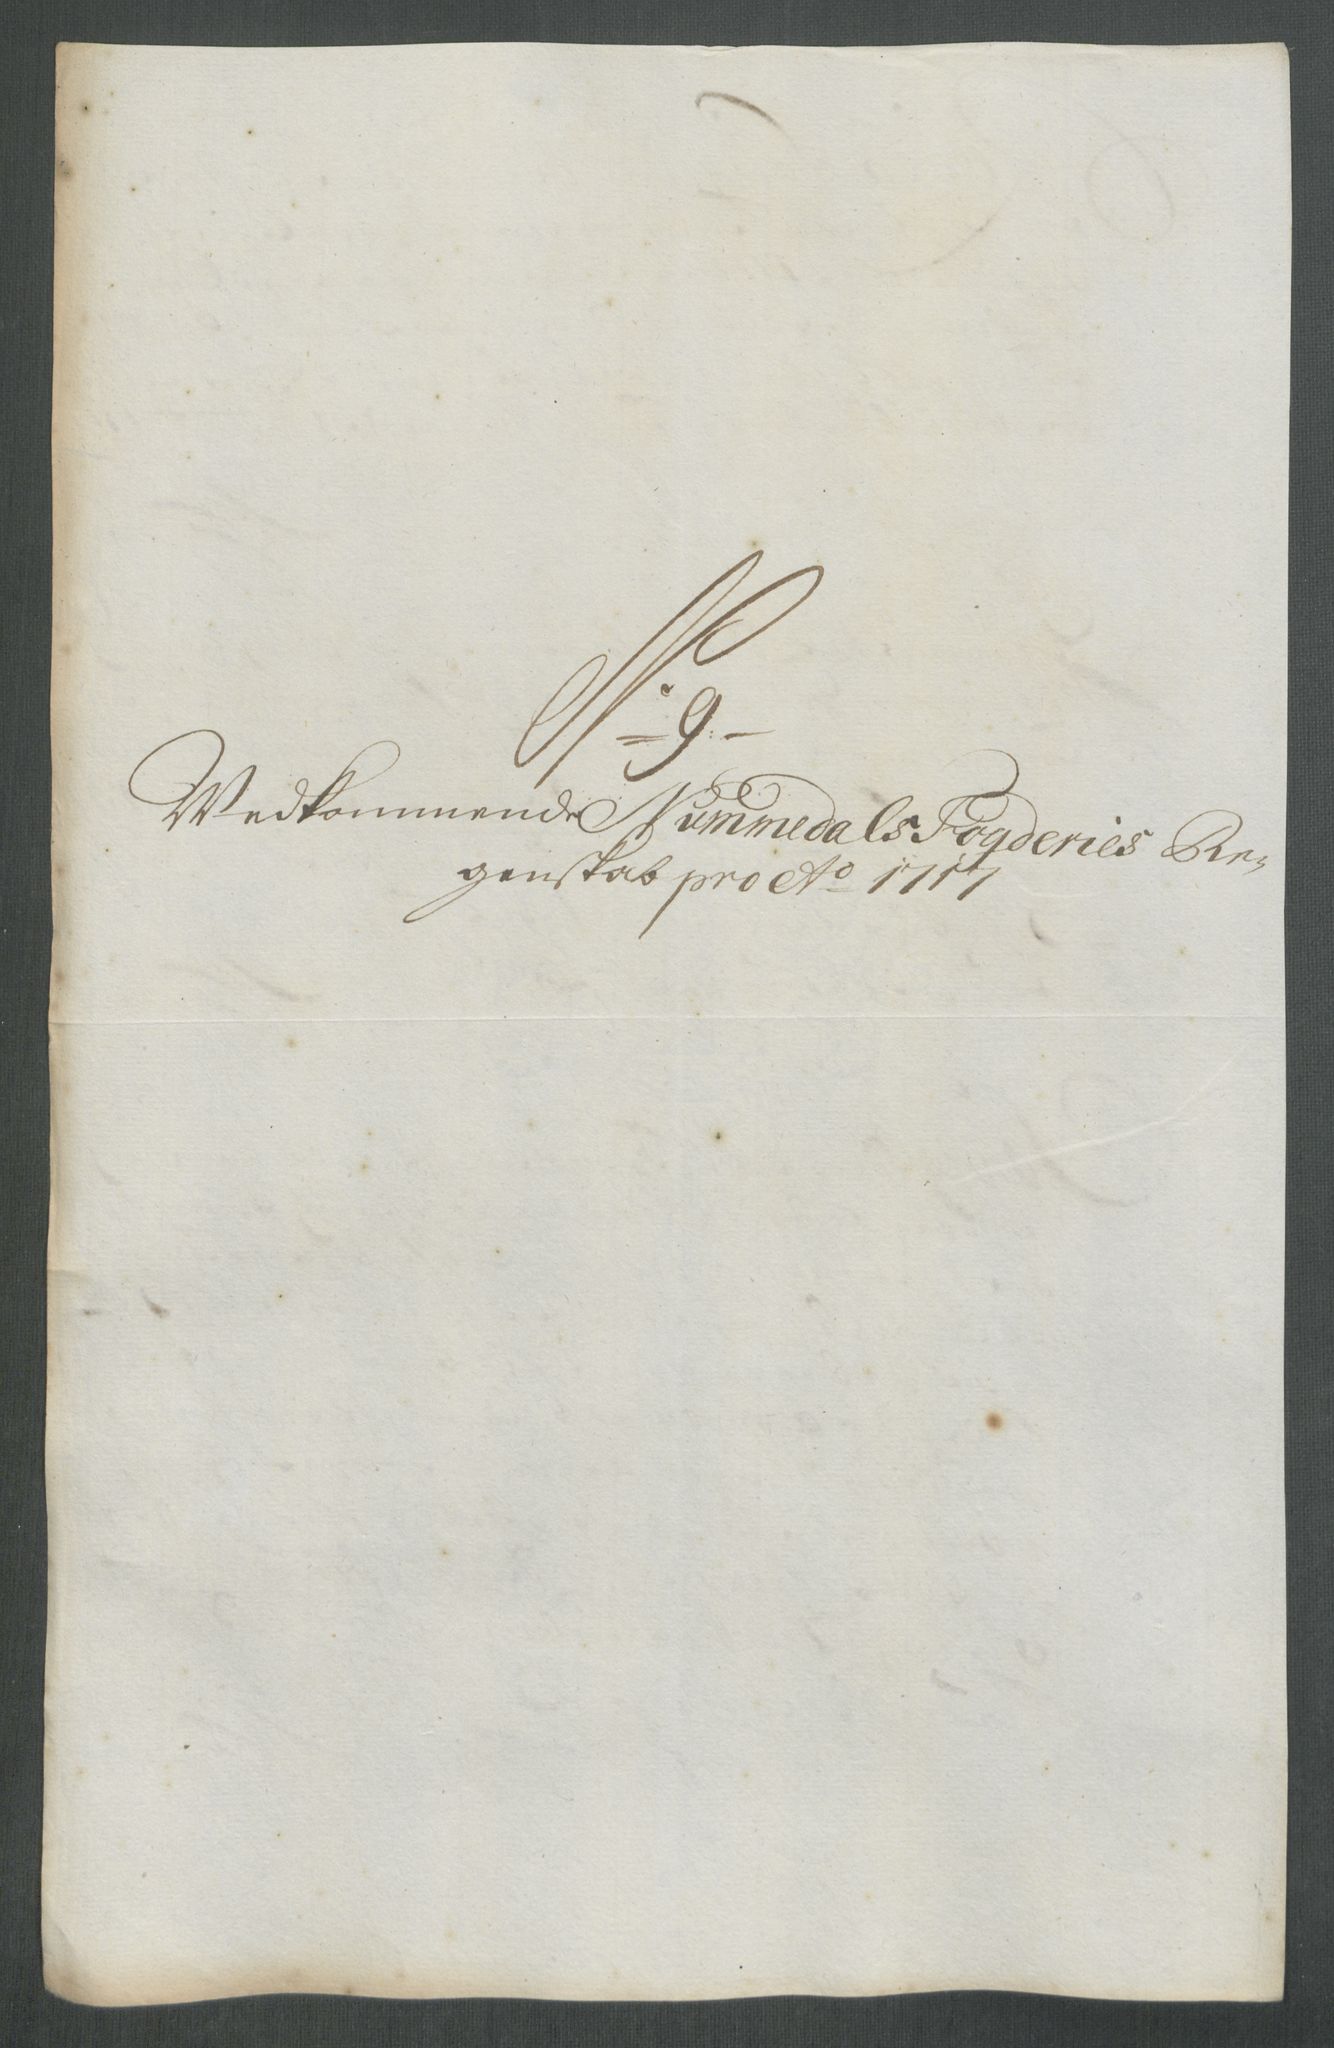 N° 9.
Wedkommende Nummedals Fogderies Re-
genskab pro Ao 1717